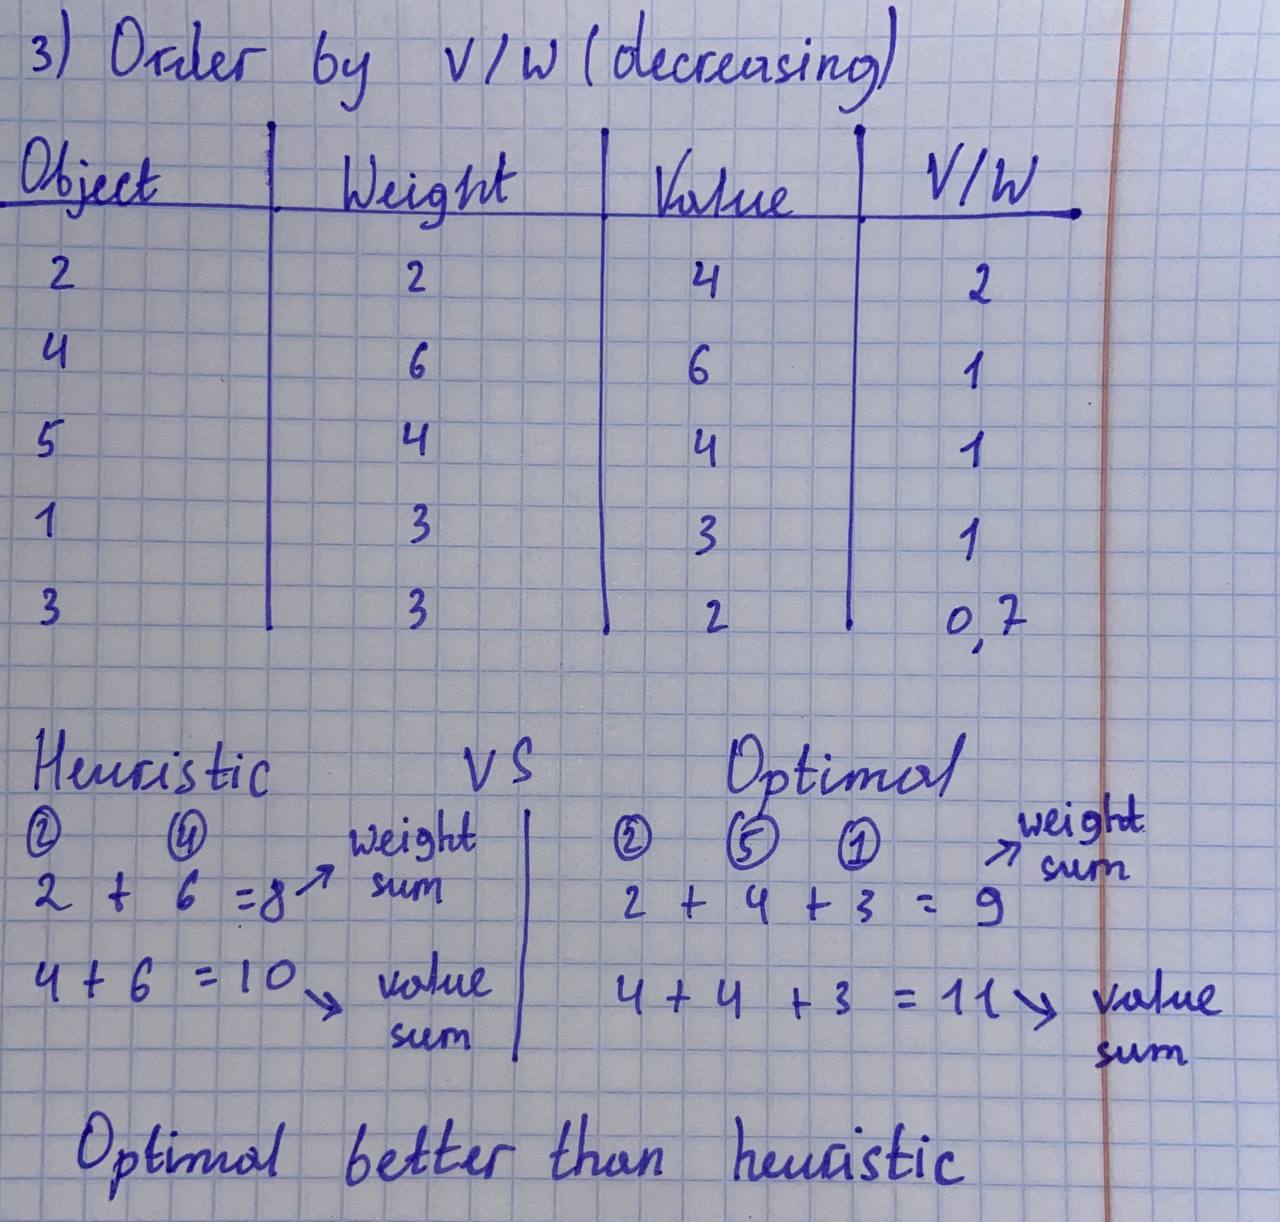 3) Order by V/W (decreasing)
Object Weight Value V/W
2 2 4 2
4 6 6 1
5 4 4 1
1 3 3 1
3 3 2 0,7
Heuristic VS Optimal
② ④ weight sum
2 + 6 = 8 ↗
4 + 6 = 10 ↘ value sum
② ⑤ ① weight sum
2 + 4 + 3 = 9 ↗
4 + 4 + 3 = 11 ↘ value sum
Optimal better than heuristic